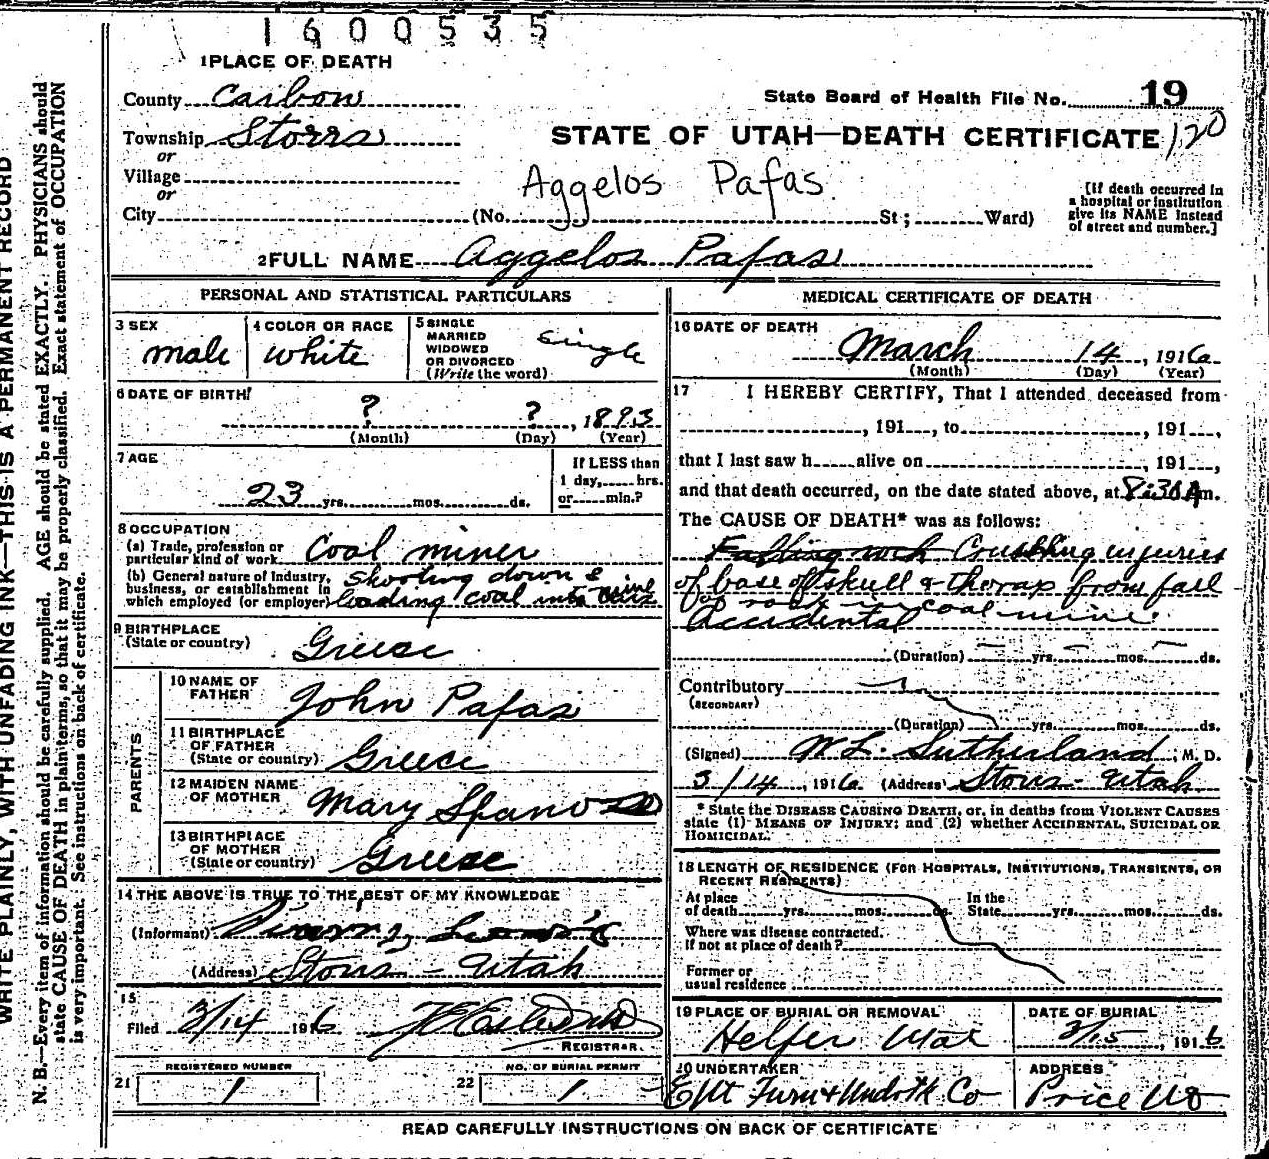 1600535
1 PLACE OF DEATH
County Carbon
State Board of Health File No. 19
Township Storrs
STATE OF UTAH—DEATH CERTIFICATE 120
or
Village
or
Aggelos Pafas
City (No. St; Ward)
[If death occurred in
a hospital or institution
give its NAME instead
of street and number.]
2 FULL NAME Aggelos Pafas
PERSONAL AND STATISTICAL PARTICULARS
3 SEX
male
4 COLOR OR RACE
white
5 SINGLE
MARRIED
WIDOWED
OR DIVORCED
(Write the word)
single
6 DATE OF BIRTH
? ? , 1893
(Month) (Day) (Year)
7 AGE
23 yrs. mos. ds.
If LESS than
1 day, hrs.
or min.?
8 OCCUPATION
(a) Trade, profession or
particular kind of work Coal miner
(b) General nature of Industry,
business, or establishment in
which employed (or employer)
shooting down &
loading coal into mine cars
9 BIRTHPLACE
(State or country)
Greese
PARENTS
10 NAME OF
FATHER
John Pafas
11 BIRTHPLACE
OF FATHER
(State or country)
Greece
12 MAIDEN NAME
OF MOTHER
Mary Spano
13 BIRTHPLACE
OF MOTHER
(State or country)
Greese
14 THE ABOVE IS TRUE TO THE BEST OF MY KNOWLEDGE
(Informant)
(Address) Storrs - Utah
15
Filed 3/14 1916
REGISTRAR.
REGISTERED NUMBER
21 1
NO. OF BURIAL PERMIT
22 1
MEDICAL CERTIFICATE OF DEATH
16 DATE OF DEATH
March 14, 1916
(Month) (Day) (Year)
17 I HEREBY CERTIFY, That I attended deceased from
, 191 , to , 191 ,
that I last saw h alive on , 191 ,
and that death occurred, on the date stated above, at 8:30 A m.
The CAUSE OF DEATH* was as follows:
Falling rock Crushing injuries
of base of skull & thorax from fall
of rock in coal mine.
Accidental
(Duration) yrs. mos. ds.
Contributory
(SECONDARY)
(Duration) yrs. mos. ds.
(Signed) W. L. Sutherland, M. D.
3/14, 1916 (Address) Storrs - Utah
* State the DISEASE CAUSING DEATH, or, in deaths from VIOLENT CAUSES
state (1) MEANS OF INJURY; and (2) whether ACCIDENTAL, SUICIDAL OR
HOMICIDAL.
18 LENGTH OF RESIDENCE (FOR HOSPITALS, INSTITUTIONS, TRANSIENTS, OR
RECENT RESIDENTS)
At place
of death yrs. mos. ds.
In the
State yrs. mos. ds.
Where was disease contracted.
if not at place of death?
Former or
usual residence
19 PLACE OF BURIAL OR REMOVAL
Helper Utah
DATE OF BURIAL
3/15, 1916
20 UNDERTAKER
Furn & Undtk Co
ADDRESS
Price Ut
READ CAREFULLY INSTRUCTIONS ON BACK OF CERTIFICATE
WRITE PLAINLY, WITH UNFADING INK—THIS IS A PERMANENT RECORD
N. B.—Every item of information should be carefully supplied. AGE should be stated EXACTLY. PHYSICIANS should
state CAUSE OF DEATH in plain terms, so that it may be properly classified. Exact statement of OCCUPATION
is very important. See instructions on back of certificate.